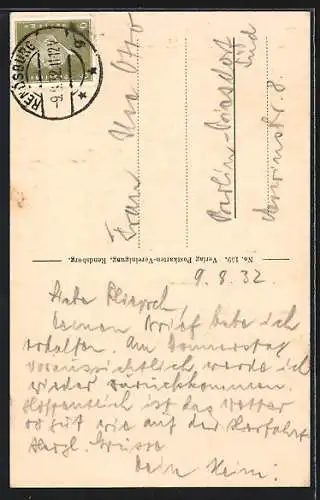 RENDSBURG
-9.8.32.11-12V
Frau Ilse Otto
Berlin-Biesdorf
Süd
No. 159. Verlag Postkarten-Vereinigung, Rendsburg.
9. 8. 32
Liebe
Deinen Brief habe ich
erhalten. Am Donnerstag
voraussichtlich, werde ich
wieder zurückkommen.
Hoffentlich ist das Wetter
so gut wie auf der Herfahrt
Herzl. Grüsse
Dein Heini